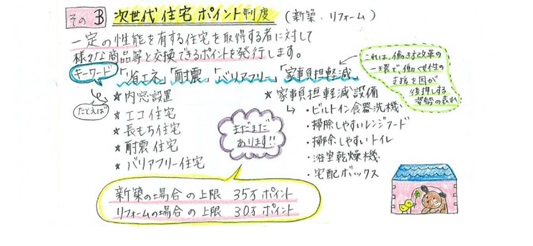 その3 次世代住宅ポイント制度（新築・リフォーム）
一定の性能を有する住宅を取得する者に対して
様々な商品等と交換できるポイントを発行します。
キーワード 「省エネ」「耐震」「バリアフリー」「家事負担軽減」
これは、働き方改革の
一環で、働く女性の
支援を国が
後押しする
姿勢の表れ
たとえば
★内窓設置
★エコ住宅
★長もち住宅
★耐震住宅
★バリアフリー住宅
まだまだ
あります!!
★家事負担軽減設備
↳・ビルトイン食器洗機
・掃除しやすいレンジフード
・掃除しやすいトイレ
・浴室乾燥機
・宅配ボックス
新築の場合の上限 35万ポイント
リフォームの場合の上限 30万ポイント